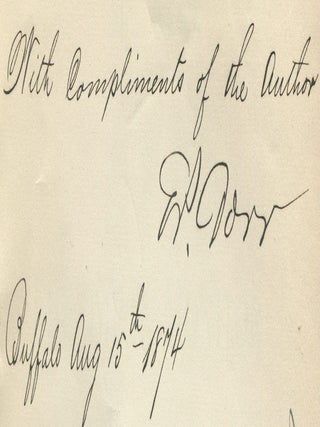 With Compliments of the Author
E.P. Dorr
Buffalo Aug 15th 1874